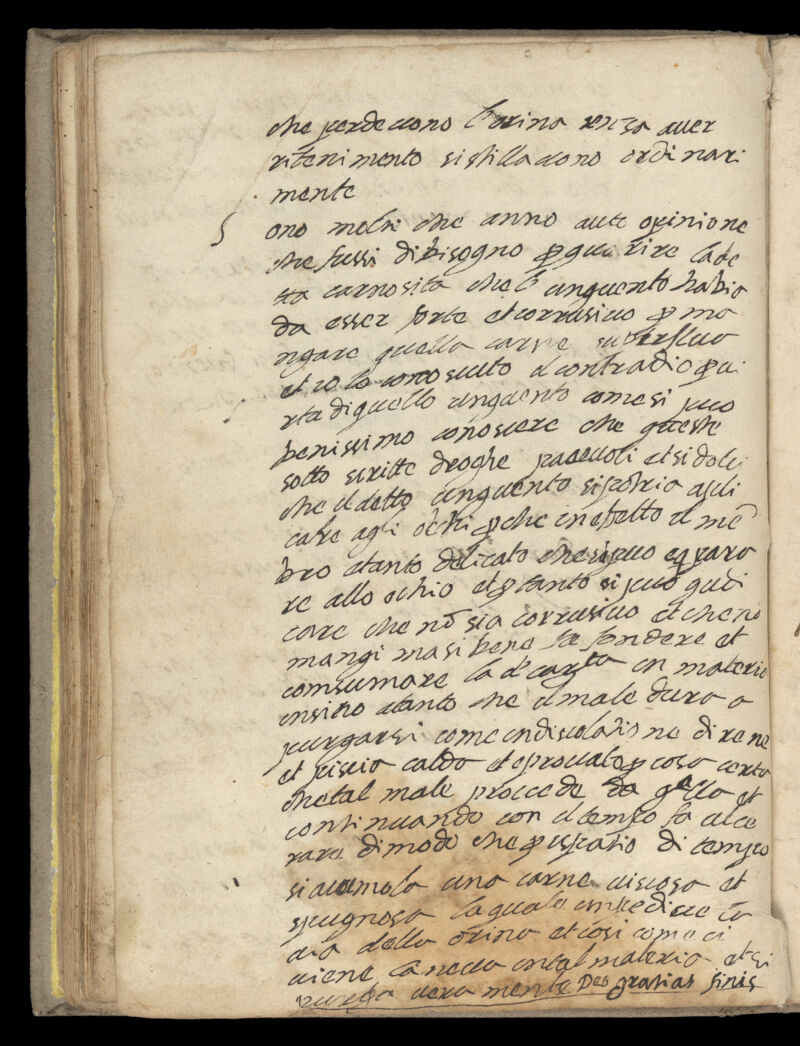 che perdevono l'orina senza aver
ritenimento si stillavono ordinari
mente
S ono molti che anno aute opinione
che fussi di bisogno p guarire la de
tta carnosita che l' unguento habia
da esser forte et corrusivo p ma
ngare quella carne superflua
et io lo conosciuto il contradio p
rta di quello unguento come si puo
benissimo conoscere che queste
sotto scritte droghe piacevoli et si dolci
che il detto unguento si potria apli
care agli ochi p che in efetto il mē
bro e tanto delicato che si puo
re allo ochio et p tanto si puo giudi
care che nō sia corrusivo et che nō
mangi ma si bene fa fondere et
comsumare la d carta in materia
insino a tanto che il male dura a
purgarsi come in discolatione di rene
et piscia caldo et e provato p cosa certa
che tal male proccede da qlla et
continuando con il tempo fa ulce
rare di modo che p ispatio di tempo
si acumola una carne viscosa et
spugnosa la quale impedisce la
via della orina et cosi come ci
viene la necca in tal materia et si
purga vera mente Deo gratias finis